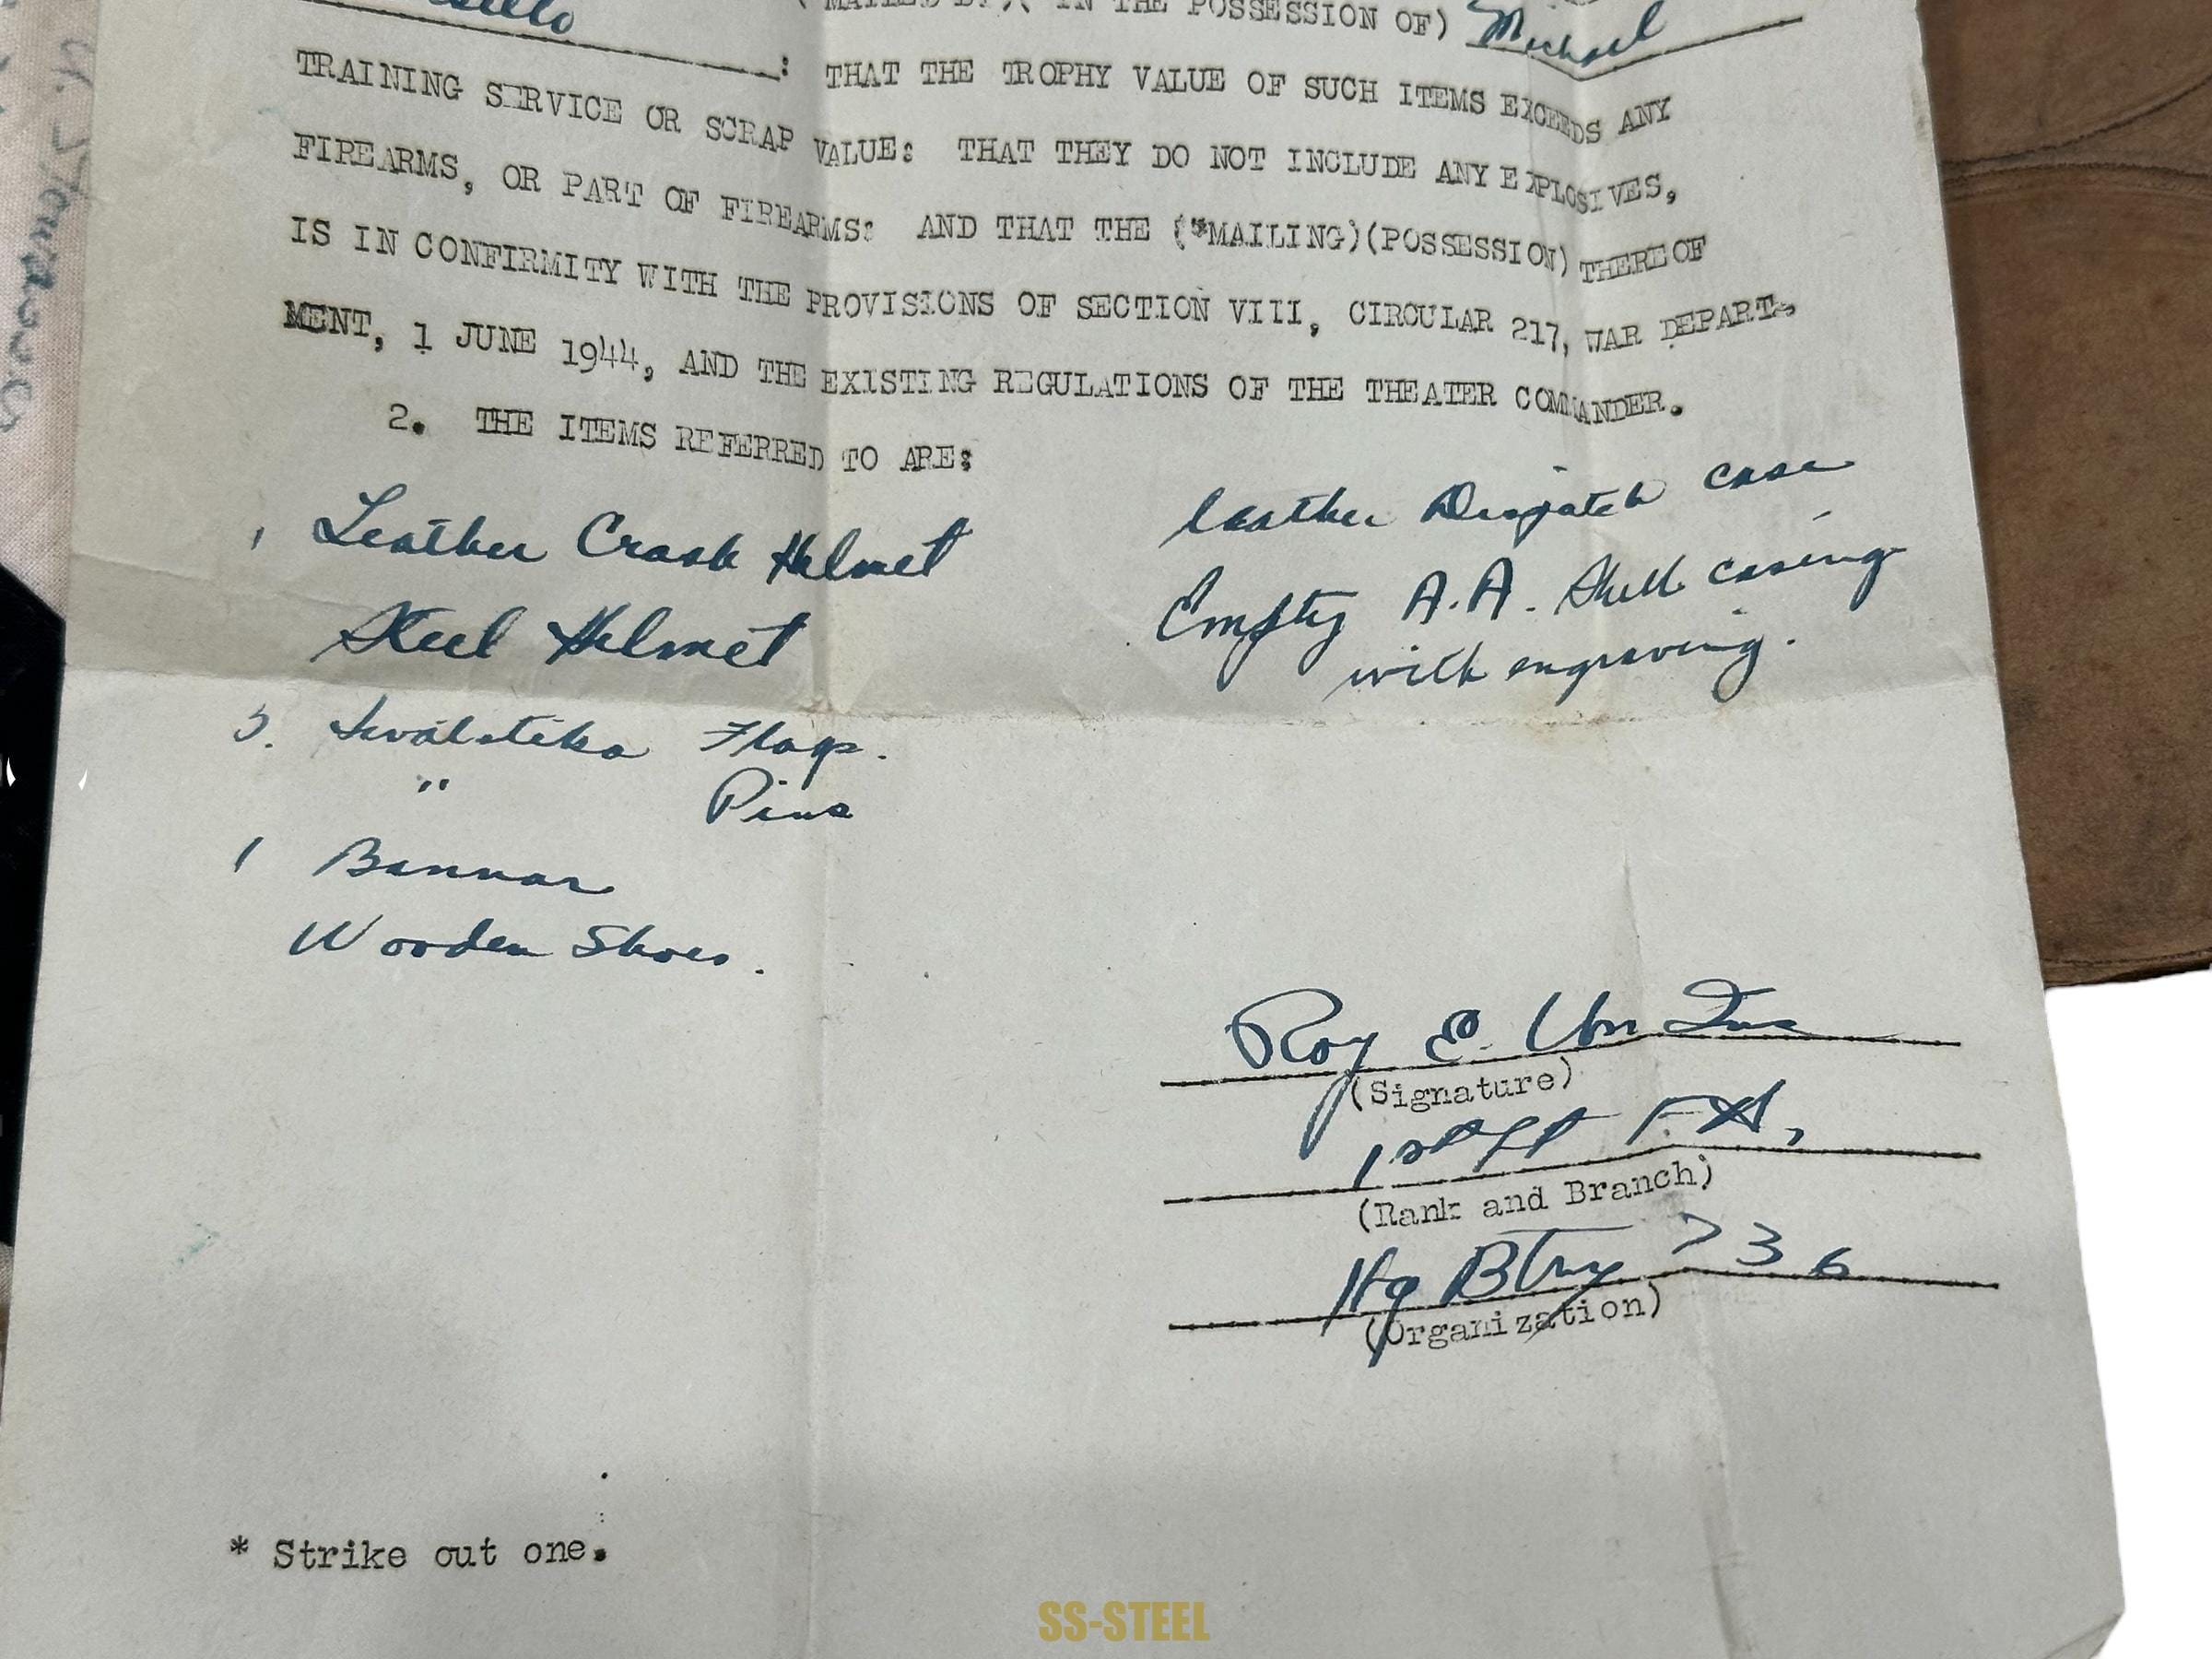 (*MAILED BY)( IN THE POSSESSION OF) Michael
: THAT THE TROPHY VALUE OF SUCH ITEMS EXCEEDS ANY
TRAINING SERVICE OR SCRAP VALUE: THAT THEY DO NOT INCLUDE ANY EXPLOSIVES,
FIREARMS, OR PART OF FIREARMS: AND THAT THE (*MAILING)(POSSESSION) THEREOF
IS IN CONFIRMITY WITH THE PROVISIONS OF SECTION VIII, CIRCULAR 217, WAR DEPART-
MENT, 1 JUNE 1944, AND THE EXISTING REGULATIONS OF THE THEATER COMMANDER.
2. THE ITEMS REFERRED TO ARE:
1 Leather Crash Helmet
Steel Helmet
3. Swalstika Flags.
" Pins
1 Bannar
Wooden Shoes.
leather Dispatch case
Empty A.A. Shell casing
with engraving.
Roy E.
(Signature)
1st Lt FA,
(Rank and Branch)
Hq Btry 736
(Organization)
* Strike out one.
SS-STEEL